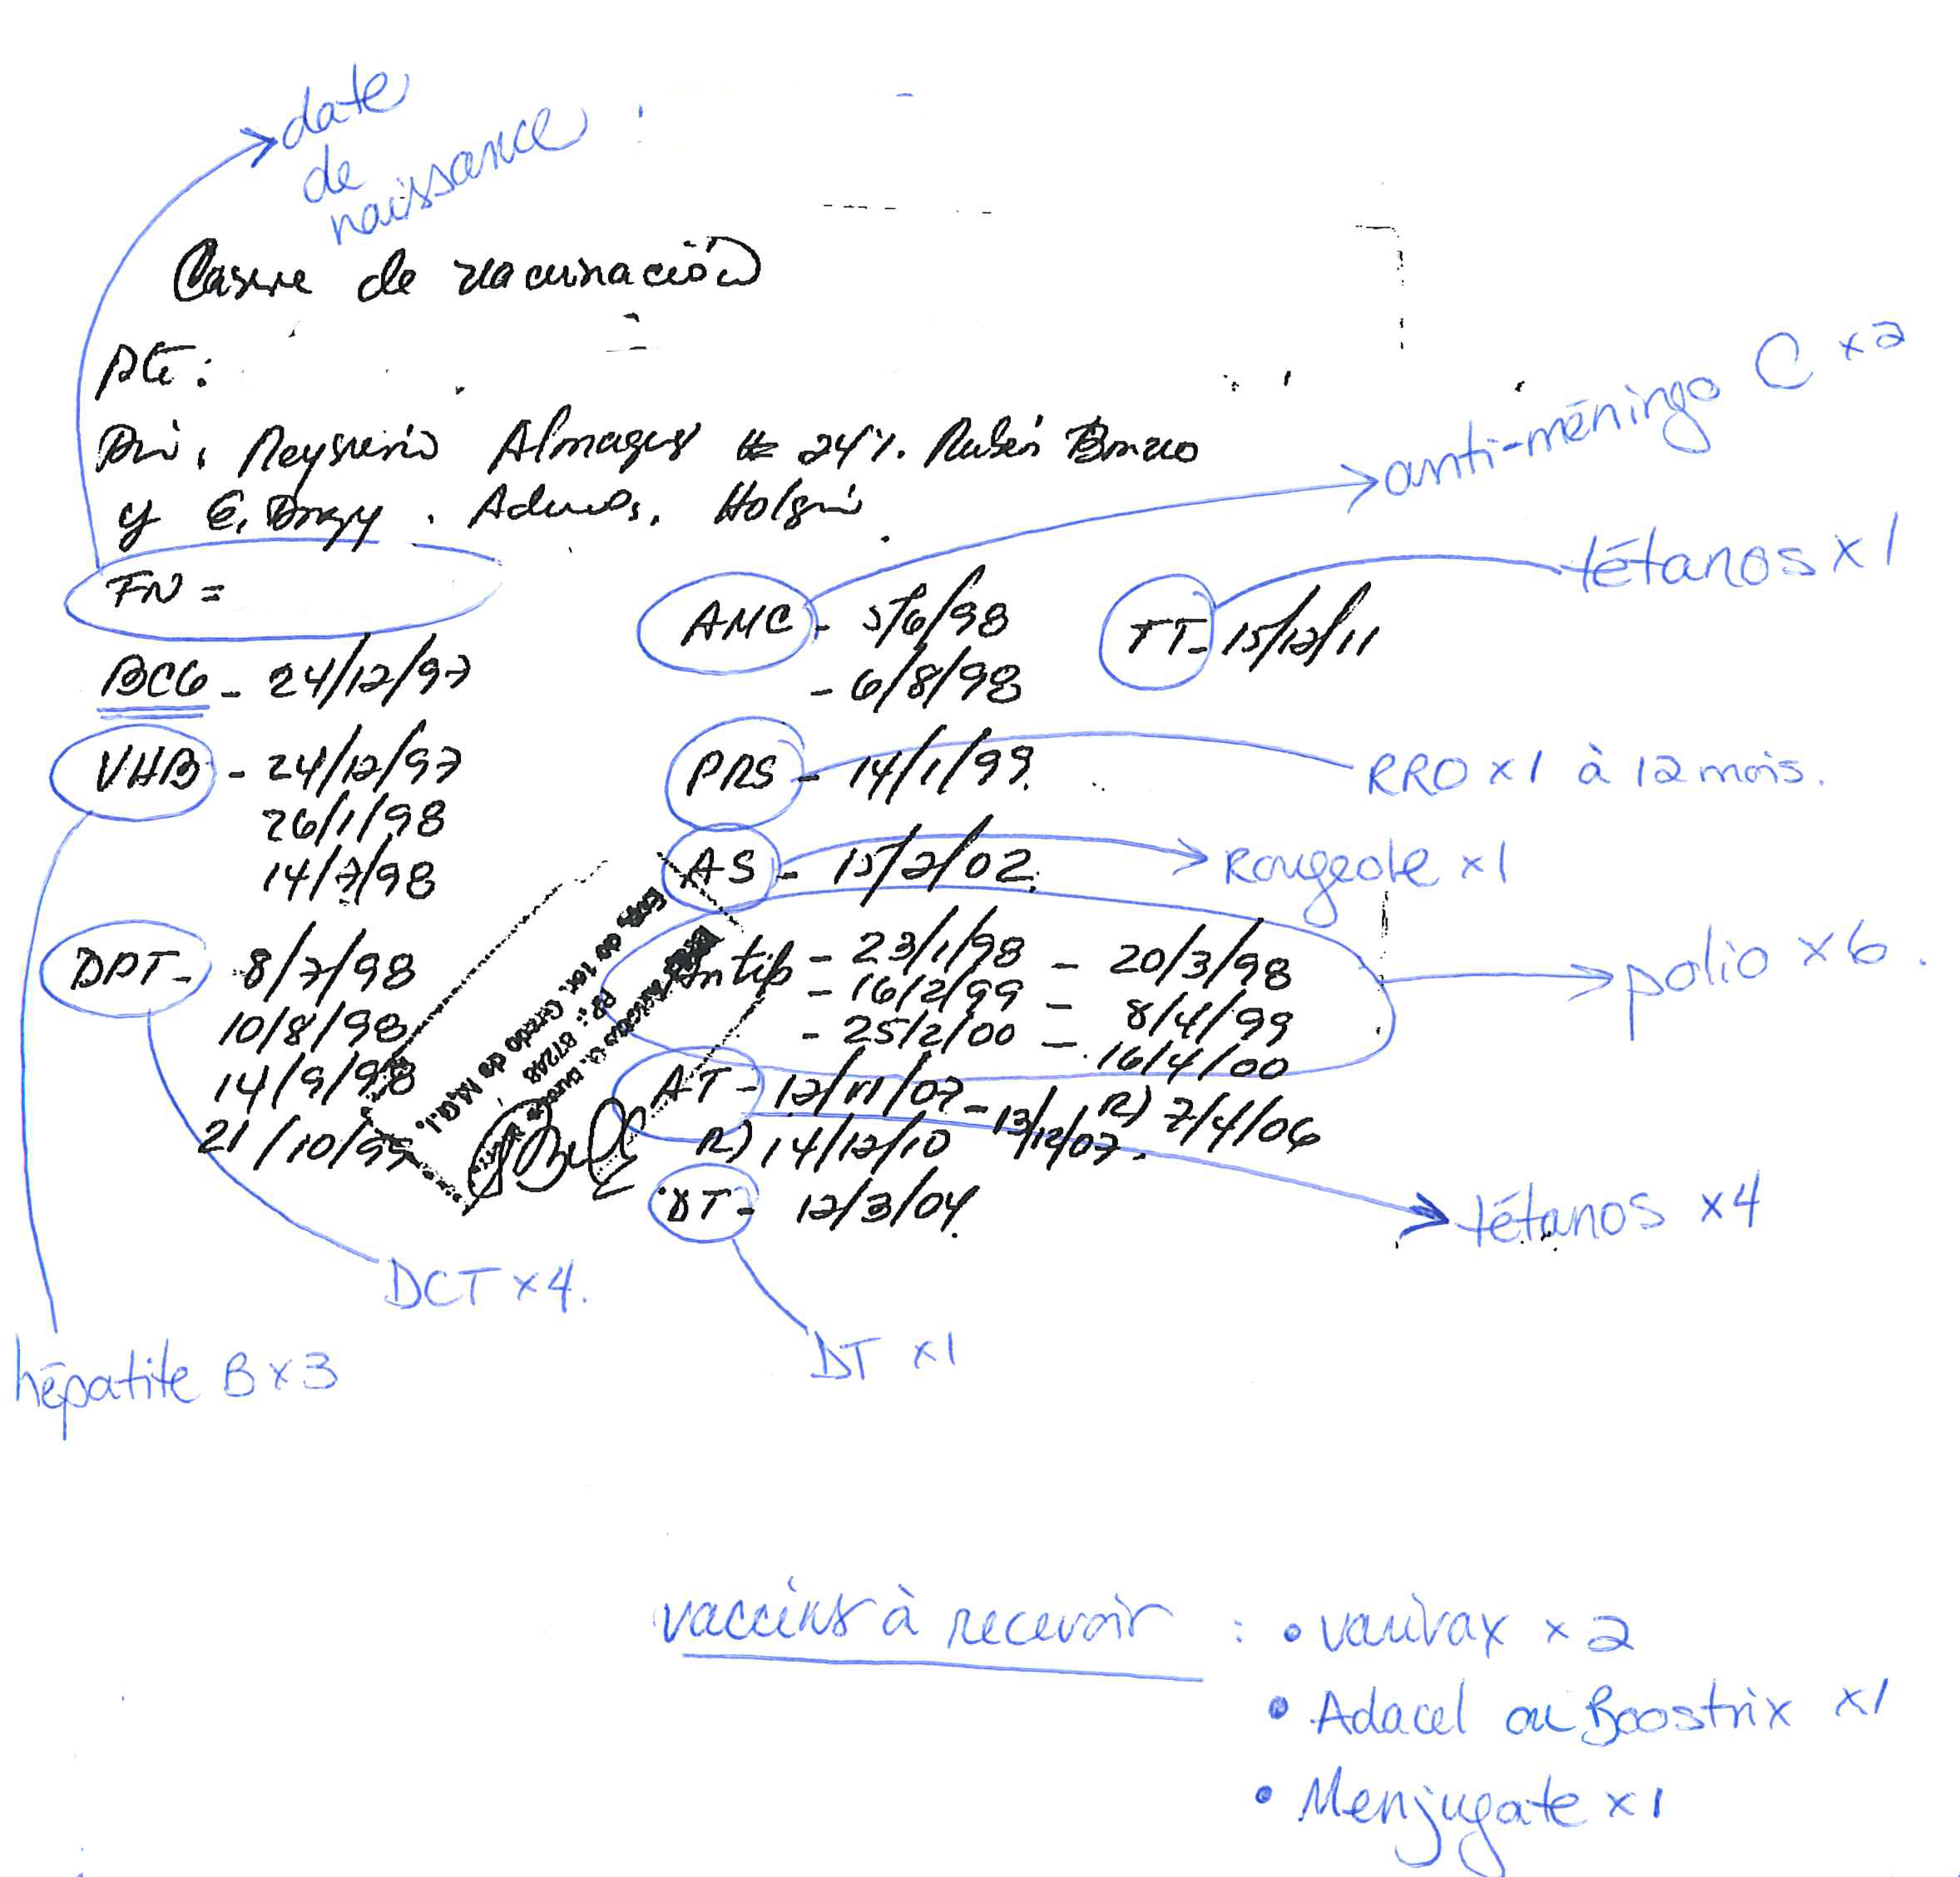 date
de
naissance :
de vacunación
Pte:
Almaguer # 247. Rubén Bravo
y Holguín
FN =
AMC - 5/6/98
- 6/8/98
anti-méningo C x2
TT - 15/12/11
tétanos x1
BCG - 24/12/97
VHB - 24/12/97
26/1/98
14/7/98
PRS - 14/1/99
RRO x1 à 12 mois.
AS - 15/2/02
Rougeole x1
DPT - 8/7/98
10/8/98
14/9/98
21/10/99
Antip - 23/1/98 - 20/3/98
- 16/2/99 - 8/4/99
- 25/2/00 - 16/4/00
polio x6.
AT - 12/11/07 - 13/12/07. R) 7/4/06
R) 14/12/10
tétanos x4
DT - 12/3/04
DCT x4.
DT x1
hépatite B x3
vaccins à recevoir : • varivax x2
• Adacel ou Boostrix x1
• Menjugate x1